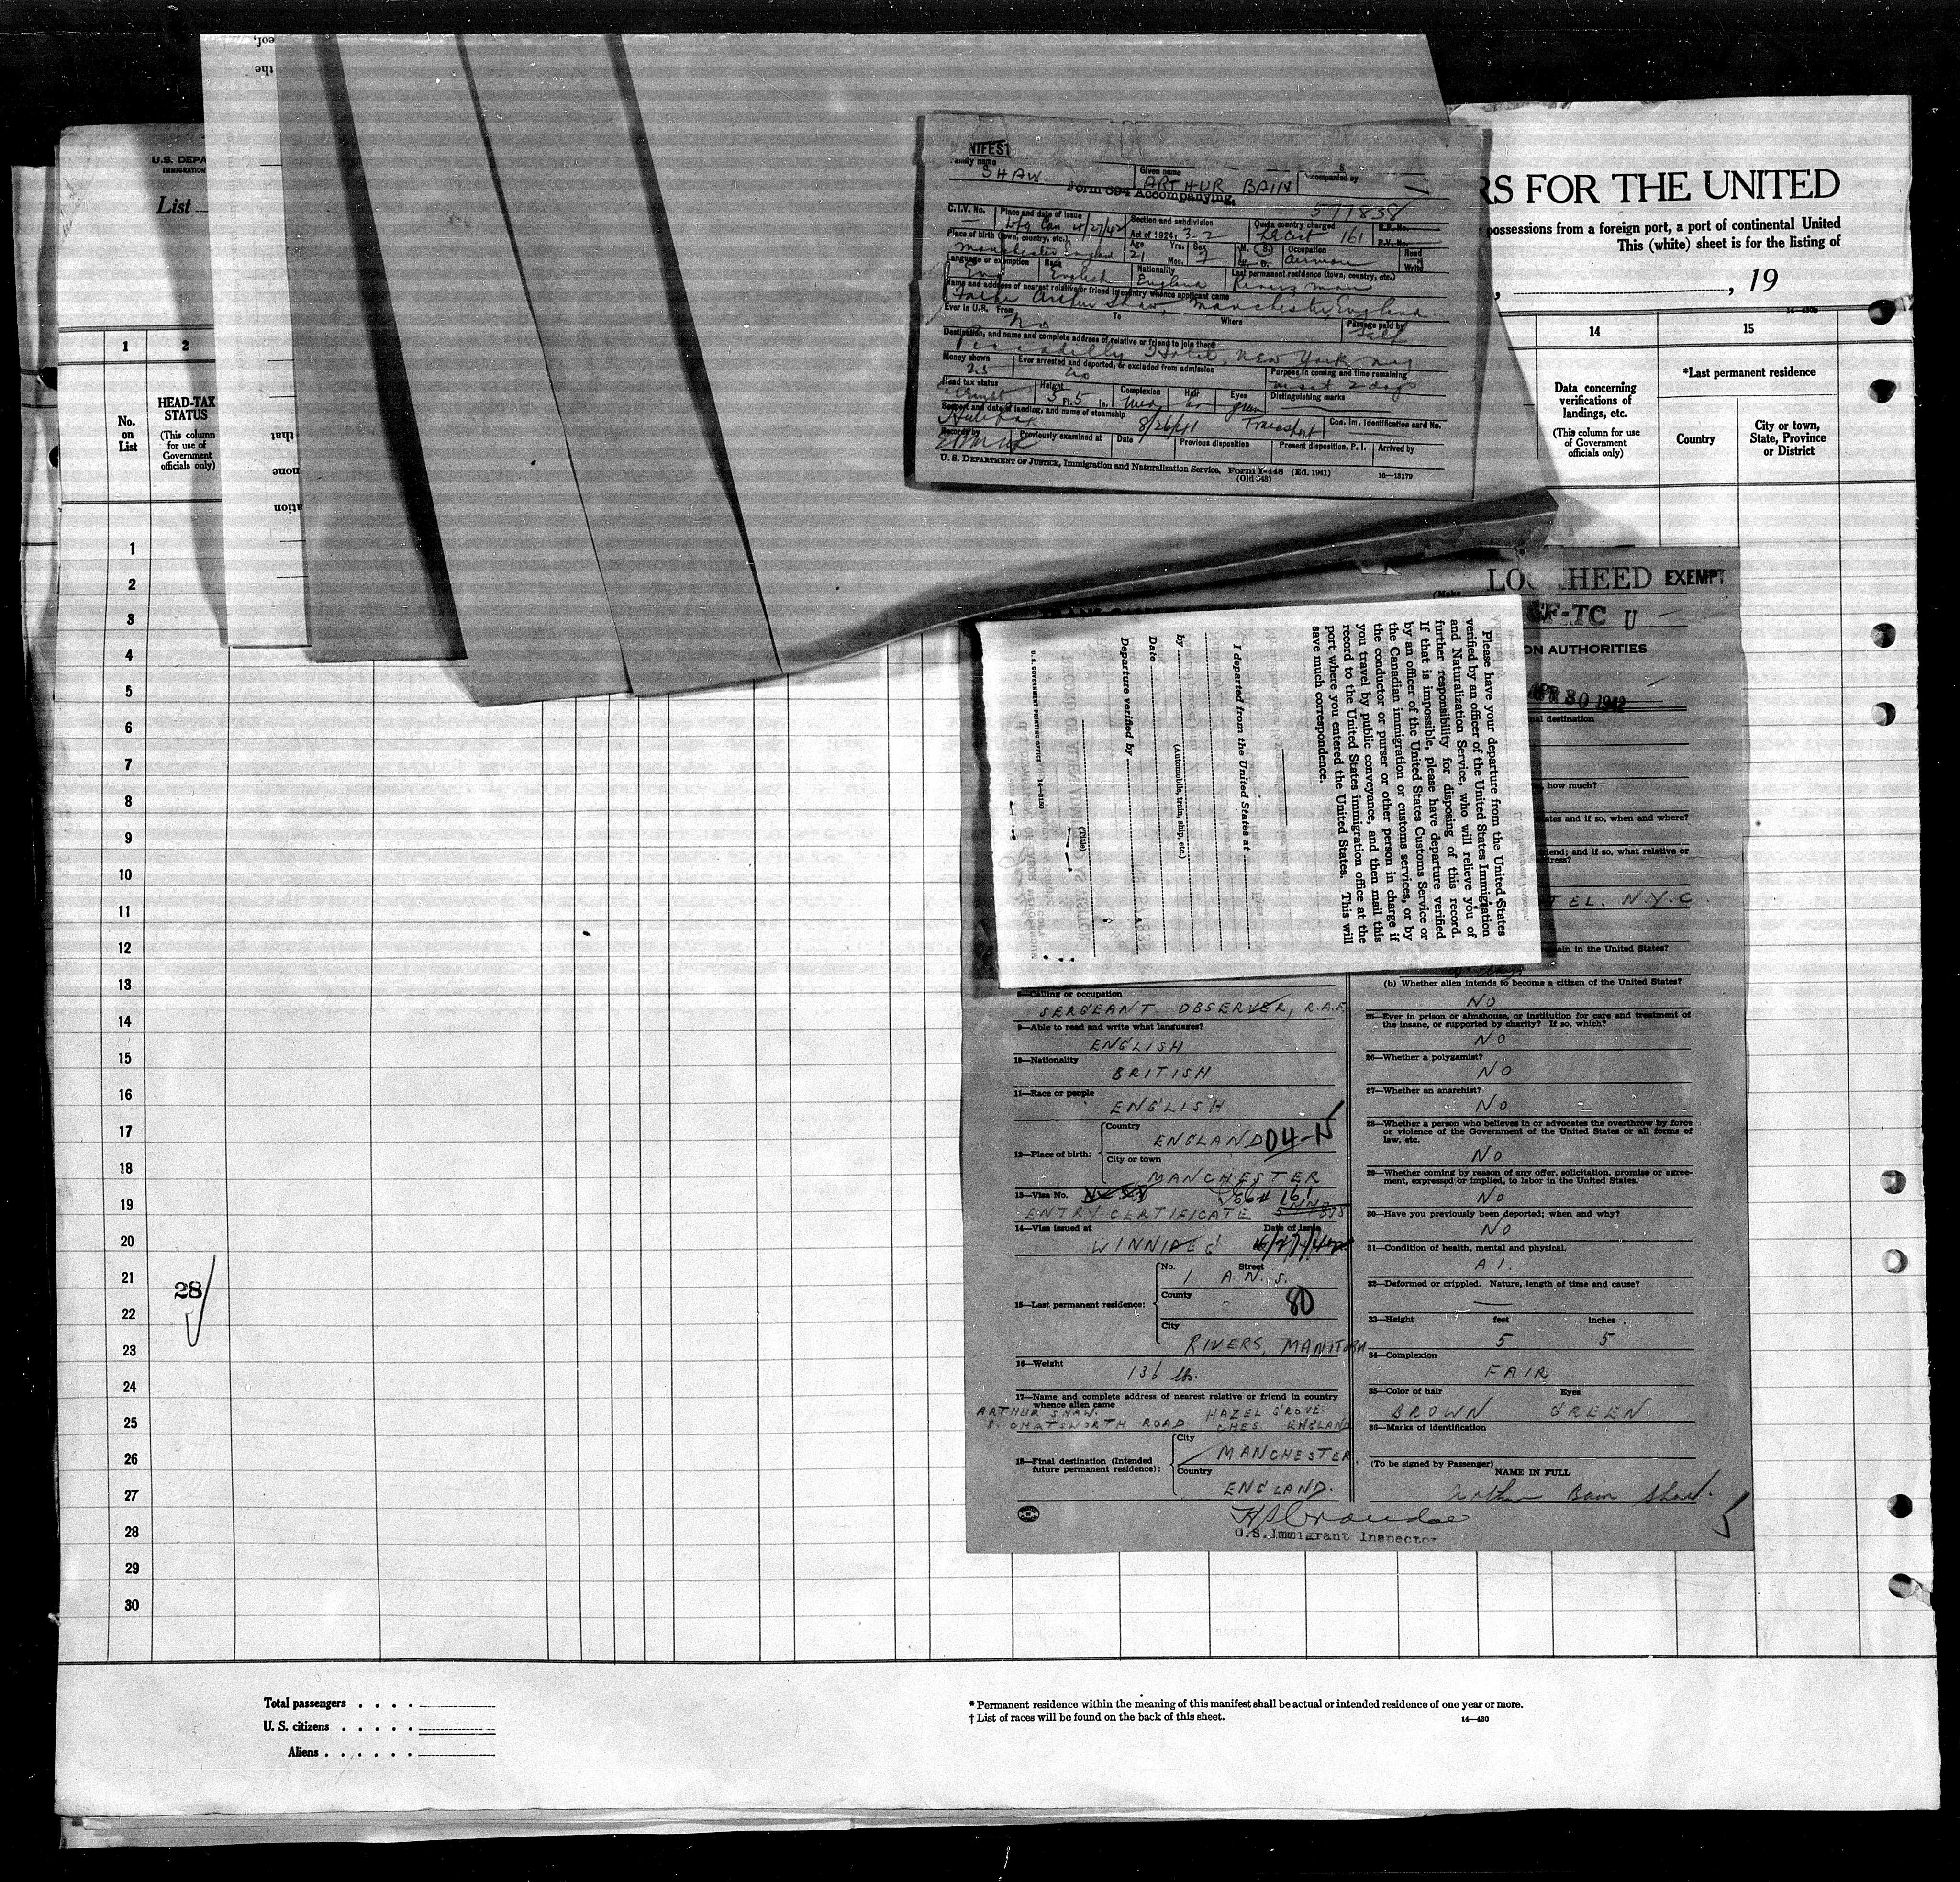 U.S. DEPA
IMMIGRATION
List
RS FOR THE UNITED
possessions from a foreign port, a port of continental United
This (white) sheet is for the listing of
, 19
1
2
14
15
No.
on
List
HEAD-TAX
STATUS
(This column
for use of
Government
officials only)
Data concerning
verifications of
landings, etc.
(This column for use
of Government
officials only)
*Last permanent residence
Country
City or town,
State, Province
or District
1
2
3
4
5
6
7
8
9
10
11
12
13
14
15
16
17
18
19
20
21
22
23
24
25
26
27
28
29
30
28
Total passengers
U. S. citizens
Aliens
* Permanent residence within the meaning of this manifest shall be actual or intended residence of one year or more.
† List of races will be found on the back of this sheet.
14—430
NIFEST
Family name
SHAW
Given name
ARTHUR BAIN
Accompanied by
Form 694 Accompanying
577838
C.I.V. No.
Place and date of issue
Wpg Can 4/27/42
Section and subdivision
Act of 1924: 3-2
Quota country charged
161
R.P. No.
P.V. No.
Place of birth (town, country, etc.)
Manchester England
Age
21
Yrs.
Mos.
Sex
M. S
W. D.
Occupation
airman
Read
Write
Language or exemption
Eng
Race
English
Nationality
England
Last permanent residence (town, country, etc.)
Rivers Man
Name and address of nearest relative or friend in country whence applicant came
Father Arthur Shaw, Manchester, England.
Ever in U.S. From
No
To
Where
Passage paid by
Self
Destination, and name and complete address of relative or friend to join there
Piccadilly Hotel, New York, NY
Money shown
25
Ever arrested and deported, or excluded from admission
No
Purpose in coming and time remaining
visit 2 days
Head tax status
Exempt
Height
5 Ft. 5 In.
Complexion
Med
Hair
br
Eyes
green
Distinguishing marks
Seaport and date of landing, and name of steamship
Halifax
8/26/41
Transport
Con. Im. Identification card No.
Records by
Previously examined at
Date
Previous disposition
Present disposition, P. I.
Arrived by
U. S. DEPARTMENT OF JUSTICE, Immigration and Naturalization Service. Form I-448 (Ed. 1941)
(Old 548)
16—13179
LOCKHEED EXEMPT
CF-TC U
ON AUTHORITIES
APR 30 1942
nal destination
, how much?
ates and if so, when and where?
iend; and if so, what relative or
dress?
TEL. N.Y.C.
Please have your departure from the United States
verified by an officer of the United States Immigration
and Naturalization Service, who will relieve you of
further responsibility for disposing of this record.
If that is impossible, please have departure verified
by an officer of the United States Customs Service or
the Canadian immigration or customs services, or by
the conductor or purser or other person in charge if
you travel by public conveyance, and then mail this
record to the United States immigration office at the
port where you entered the United States. This will
save much correspondence.
I departed from the United States at
by
(Automobile, train, ship, etc.)
Date
Departure verified by
(Title)
U. S. GOVERNMENT PRINTING OFFICE 14—3100
8—Calling or occupation
SERGEANT OBSERVER, R.A.F.
9—Able to read and write what languages?
ENGLISH
10—Nationality
BRITISH
11—Race or people
ENGLISH
12—Place of birth:
Country
ENGLAND 04-N
City or town
MANCHESTER
13—Visa No.
161
ENTRY CERTIFICATE
14—Visa issued at
Date of issue
WINNIPEG 4/27/42
15—Last permanent residence:
No.
Street
1 A.N.S.
County
80
City
RIVERS, MANITOBA
16—Weight
136 lbs.
17—Name and complete address of nearest relative or friend in country
whence alien came
ARTHUR SHAW. HAZEL GROVE.
CHATSWORTH ROAD CHES. ENGLAND
18—Final destination (Intended
future permanent residence):
City
MANCHESTER.
Country
ENGLAND.
ain in the United States?
2 days
(b) Whether alien intends to become a citizen of the United States?
NO
25—Ever in prison or almshouse, or institution for care and treatment of
the insane, or supported by charity? If so, which?
NO
26—Whether a polygamist?
NO
27—Whether an anarchist?
NO
28—Whether a person who believes in or advocates the overthrow by force
or violence of the Government of the United States or all forms of
law, etc.
NO
29—Whether coming by reason of any offer, solicitation, promise or agree-
ment, expressed or implied, to labor in the United States.
NO
30—Have you previously been deported; when and why?
NO
31—Condition of health, mental and physical.
A1.
32—Deformed or crippled. Nature, length of time and cause?
33—Height
feet
inches
5
5
34—Complexion
FAIR
35—Color of hair
Eyes
BROWN GREEN
36—Marks of identification
(To be signed by Passenger)
NAME IN FULL
Arthur Bain Shaw.
U.S. Immigrant Inspector